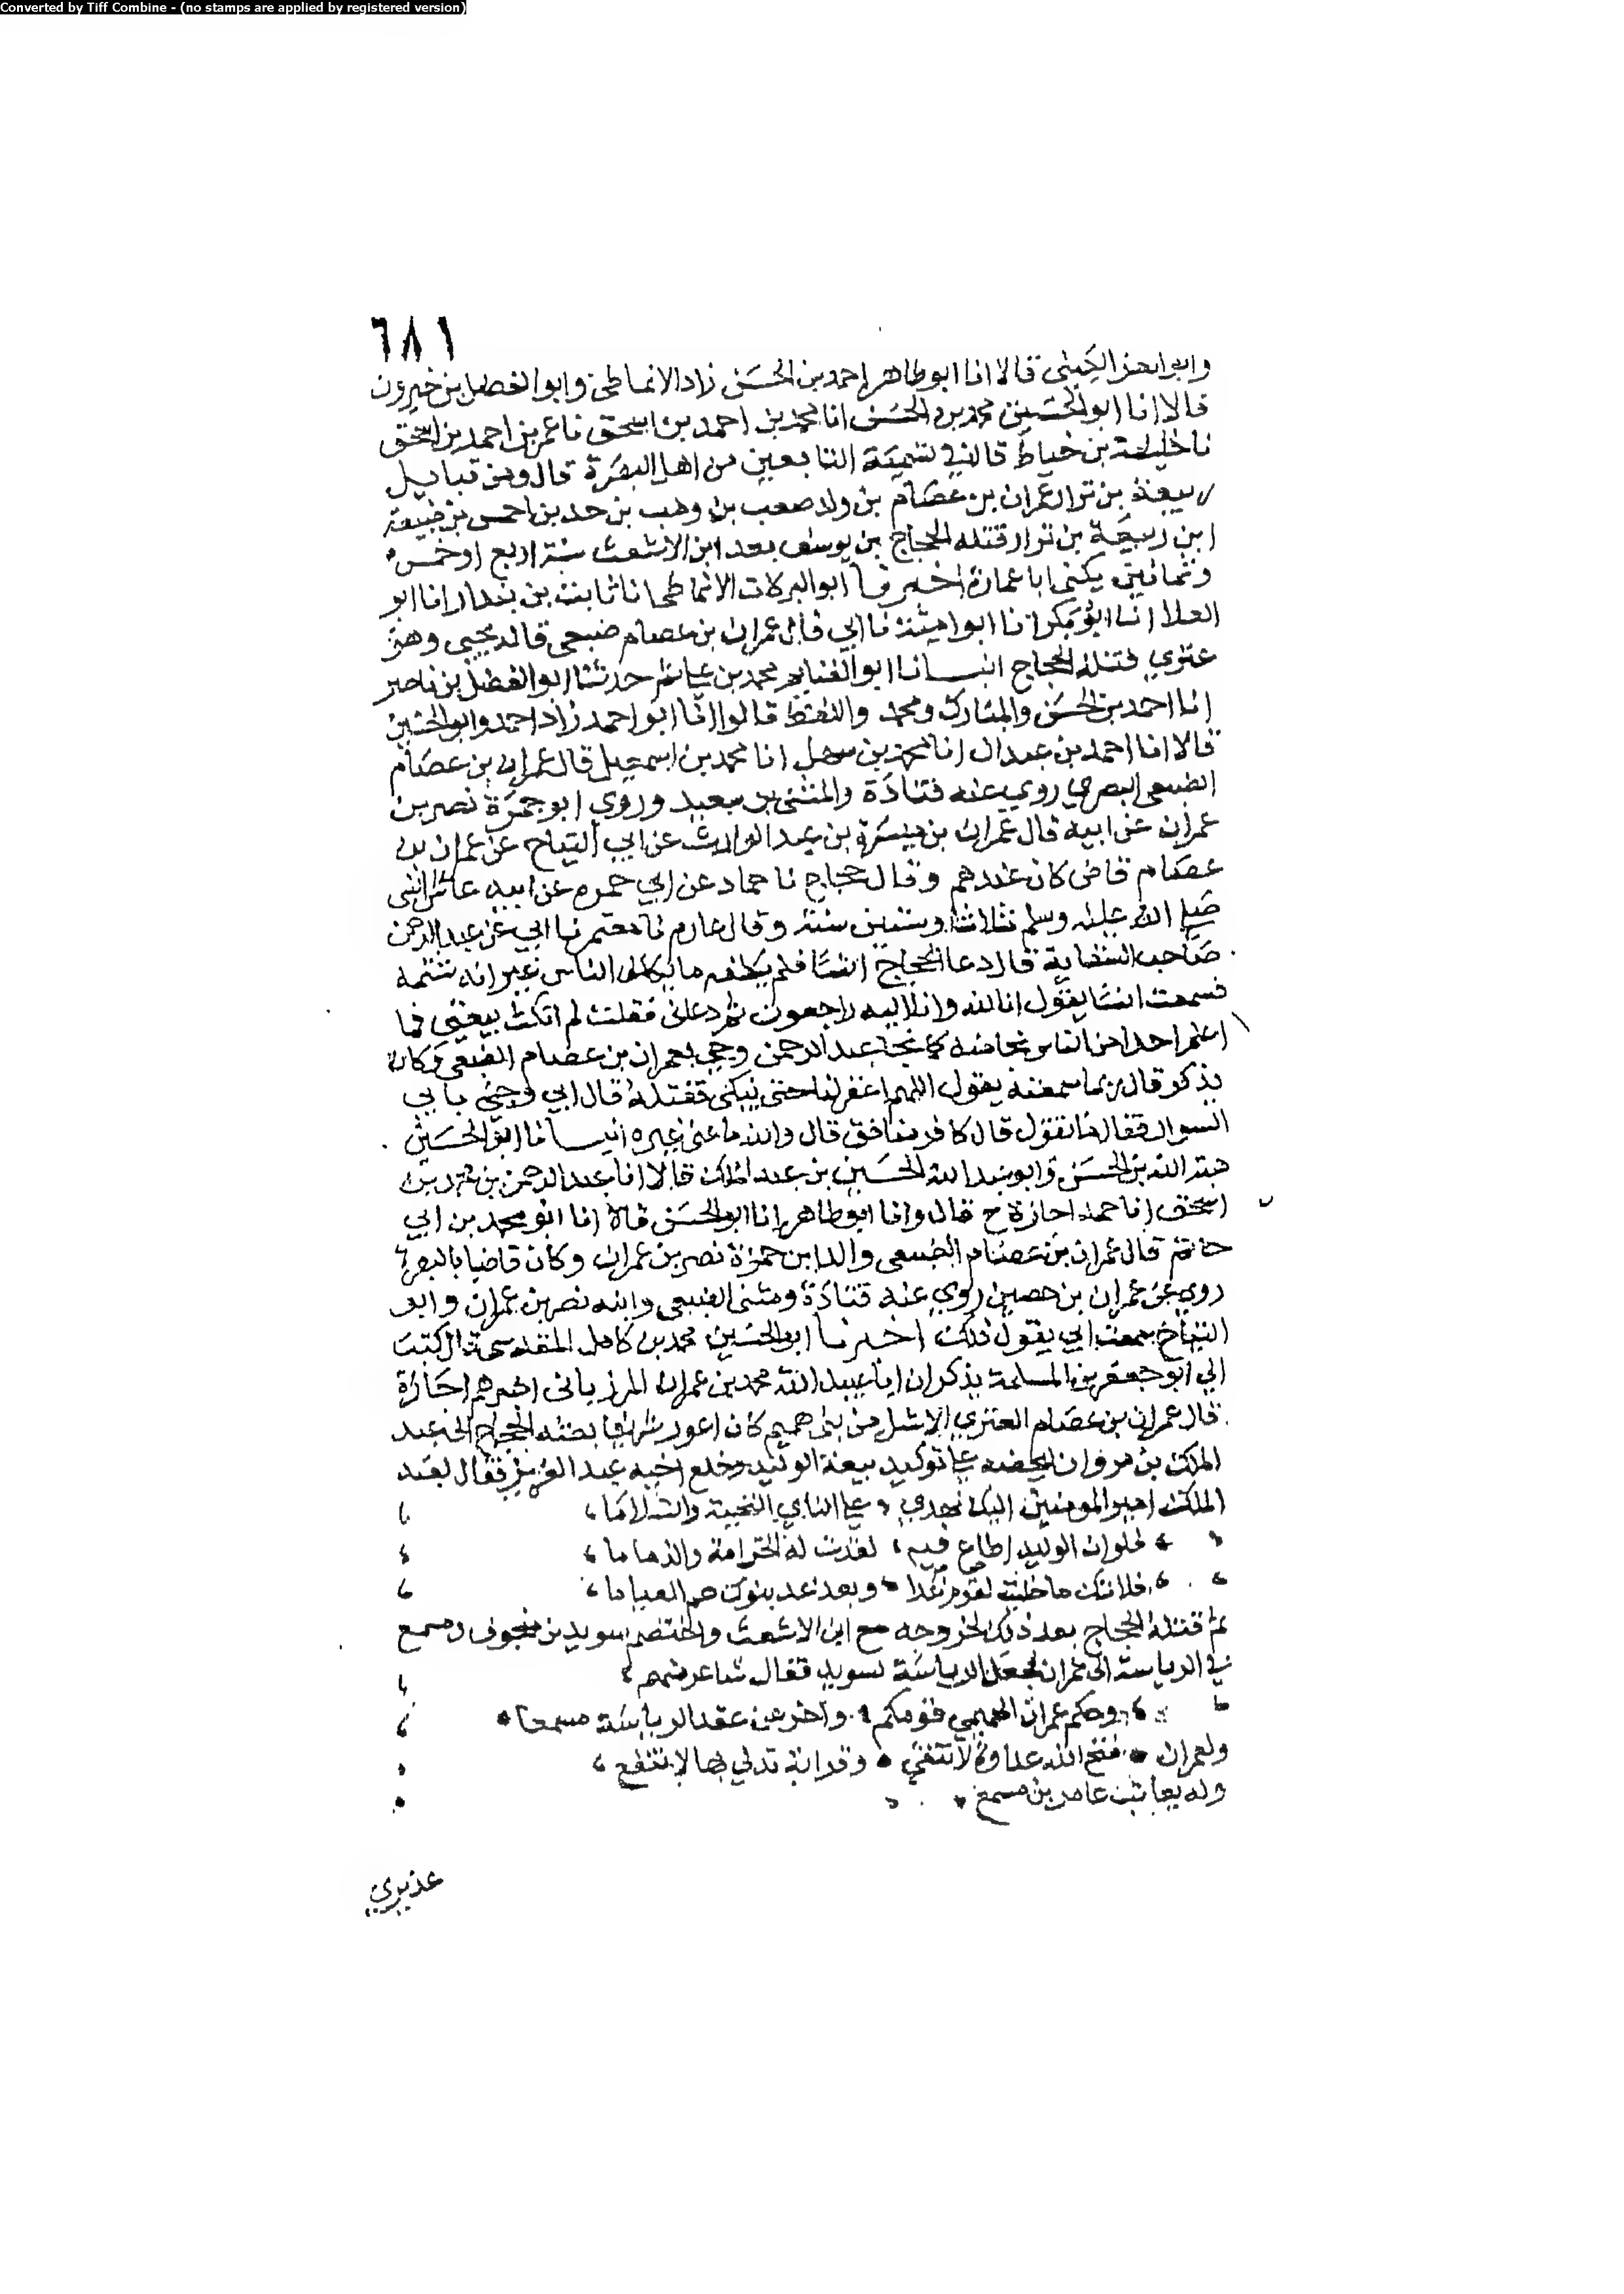 Converted by Tiff Combine - (no stamps are applied by registered version)
٦٨١
وابو العز الكيلي قالا انا ابو طاهر احمد بن الحسن زاد الانماطي وابو الفضل بن خيرون
قالا انا ابو الحسين محمد بن الحسن انا محمد بن احمد بن اسحق نا عمر بن احمد بن اسحق
نا خليفة بن خياط قال في تسمية التابعين من اهل البصرة قال ومن قبايل
ربيعة بن نزار عمران بن عصام من ولد صعب بن وهب بن حد بن احمس بن ضبيعة
ابن ربيعة بن نزار قتله الحجاج بن يوسف بعد ابن الاشعث سنة اربع او خمس
وثمانين يكنى ابا عمارة اخبرنا ابو البركات الانماطي انا ثابت بن بندار انا ابو
العلا انا ابو بكر انا ابو امية نا ابي قال عمران بن عصام ضبعي قال يحيى وهو
عنزي قتله الحجاج انبانا ابو الغنايم محمد بن علي ثم حدثنا ابو الفضل بن ناصر
انا احمد بن الحسن والمبارك ومحمد واللفظ قالوا انا ابو احمد زاد احمد وابو الحسين
قالا انا احمد بن عبدان انا محمد بن سهل انا محمد بن اسمعيل قال عمران بن عصام
الضبعي البصري روي عنه قتادة والمثنى بن سعيد وروي ابو جمرة نصر بن
عمران عن ابيه قال عمران بن ميسرة بن عبد الوارث عن ابي التياح عن عمران بن
عصام قاض كان عندهم وقال حجاج نا حماد عن ابي حمره عن ابيه عاش النبي
صلي الله عليه وسلم ثلاثا وستين سنة وقال عارم نا معتمر نا ابي عن عبد الرحمن
صاحب السقاية قال دعا الحجاج انسا فلم يكلفه ما يكلف الناس غير انه شتمه
فسمعت انسا يقول انا لله وانا اليه راجعون ثم دعاني فقلت لم انكث بيعتي فما
اعلم احدا من الناس نجا منه كما نجا عبد الرحمن وجي بعمران بن عصام الضبعي وكان
يذكر قال ربما سمعته يقول اللهم اغفر لنا حتى يبكي فقتله قال ابي وجي بابي
السوار فقال ما تقول قال كافر منافق قال والله ما عنى غيره انبانا ابو الحسين
هبة الله بن الحسن وابو عبد الله الحسين بن عبد الملك قالا انا عبد الرحمن بن محمد بن
اسحق انا حمد اجازة ح قال وانا ابو طاهر انا ابو الحسن قالا انا ابو محمد بن ابي
حاتم قال عمران بن عصام الضبعي والد ابن حمزة نصر بن عمران وكان قاضيا بالبصرة
روي عن عمران بن حصين روي عنه قتادة ومثنى الضبعي وابنه نصر بن عمران وابو
التياح سمعت ابي يقول ذلك اخبرنا ابو الحسين محمد بن كامل المقدسي قال كتب
الي ابو جعفر بن المسلمة يذكر ان ابا عبيد الله محمد بن عمران المرزباني اخبرهم اجازة
قال عمران بن عصام العنزي الاشل من بني هميم كان اعور شريفا بعثه الحجاج الى عبد
الملك بن مروان ليحضه علي توكيد بيعة الوليد وخلع اخيه عبد العزيز فقال لعبد
الملك امير المومنين اليك نهدي علي الناي التحية والسلاما
فلو ان الوليد اطاع فيه لقدت له الخزامة والذماما
فلا تك ما حلبت لقوم غدا وبعد غد بنوك هم العياما
ثم قتله الحجاج بعد ذلك لخروجه مع ابن الاشعث واختصم سويد بن منجوف ومسمع
في الرياسة الى عمران فجعل الرياسة لسويد فقال شاعر منهم
وحكم عمران الهميمي قومكم واخر عن عقد الرياسة مسمعا
ولعمران فقبح الله عداوة لا تتقي وقرابة تدلي بها لا تنفع
وله يعاتب عامر بن مسمع
عذيري